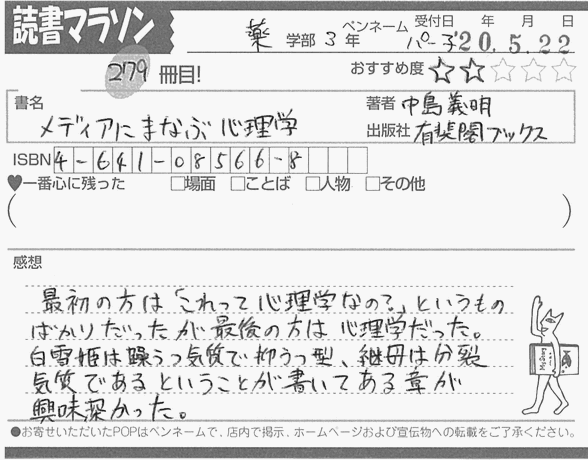 読書マラソン
薬 学部 3 年
ペンネーム パー子
受付日 年 月 日
'20.5.22
279 冊目!
おすすめ度 ☆☆☆☆☆
書名
メディアにまなぶ心理学
著者 中島義明
出版社 有斐閣ブックス
ISBN 4-641-08566-8
♥一番心に残った □場面 □ことば □人物 □その他
( )
感想
最初の方は「これって心理学なの?」というもの
ばかりだったが最後の方は心理学だった。
白雪姫は躁うつ気質で抑うつ型、継母は分裂
気質であるということが書いてある章が
興味深かった。
●お寄せいただいたPOPはペンネームで、店内で掲示、ホームページおよび宣伝物への転載をご了承ください。